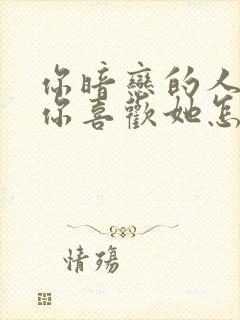 你暗戀的人
你喜歡她怎
情殤